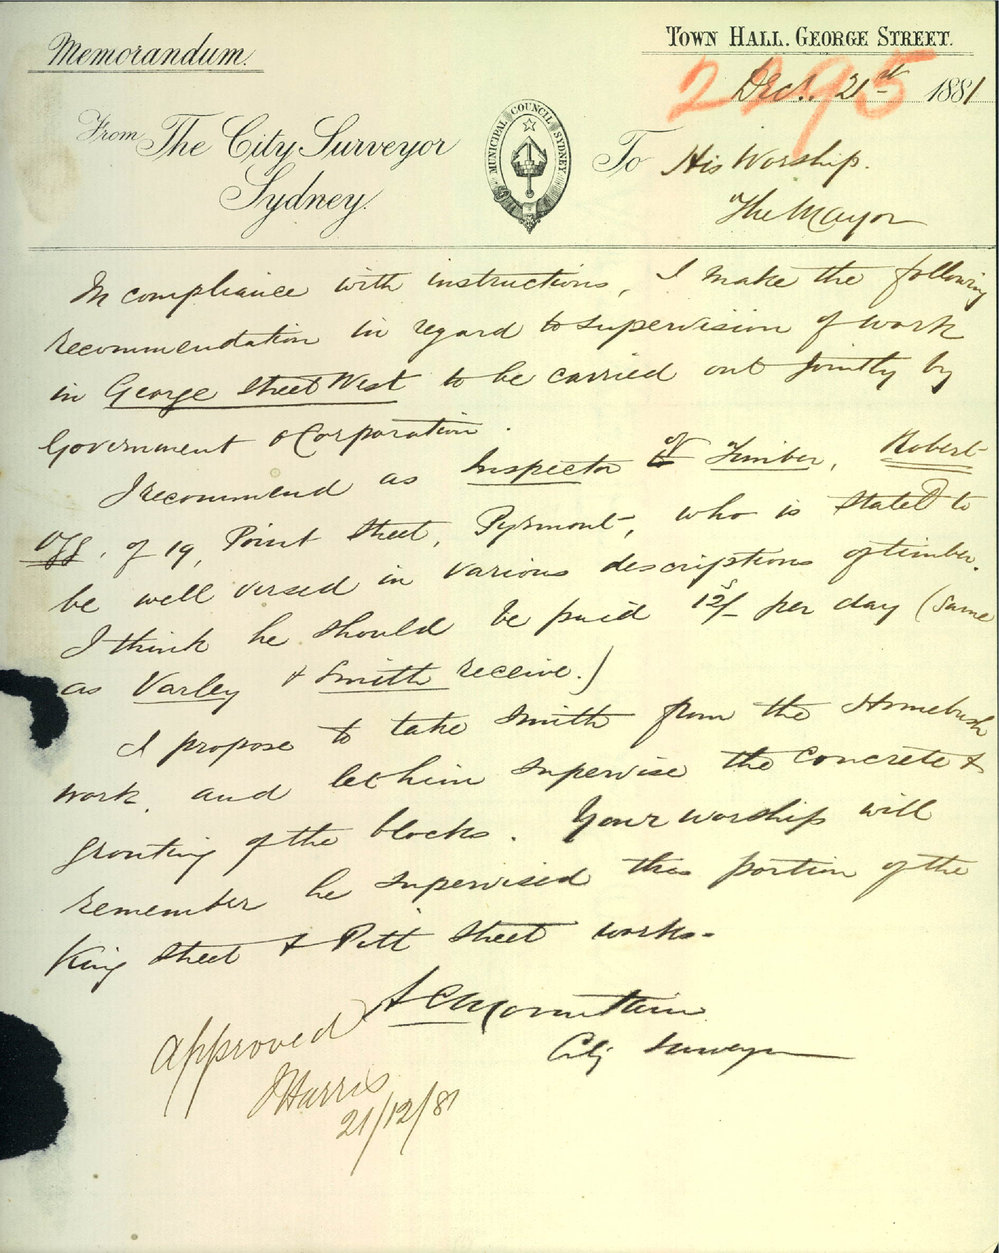 Memorandum.
TOWN HALL. GEORGE STREET.
2295
Dec. 21st 1881
From The City Surveyor
Sydney.
MUNICIPAL COUNCIL SYDNEY
To His Worship.
The Mayor
In compliance with instructions, I make the following
recommendation in regard to supervision of work
in George Street West to be carried out jointly by
Government & Corporation.
I recommend as Inspector of Timber, Robert
of 19, Point Street, Pyrmont, who is stated to
be well versed in various descriptions of timber.
I think he should be paid 12s/- per day (same
as Varley & Smith receive.)
I propose to take Smith from the Homebush
work, and let him supervise the concrete &
grouting of the blocks. Your worship will
remember he supervised this portion of the
King Street & Pitt Street works-
A C Mountain
City Surveyor
Approved
J Harris
21/12/81